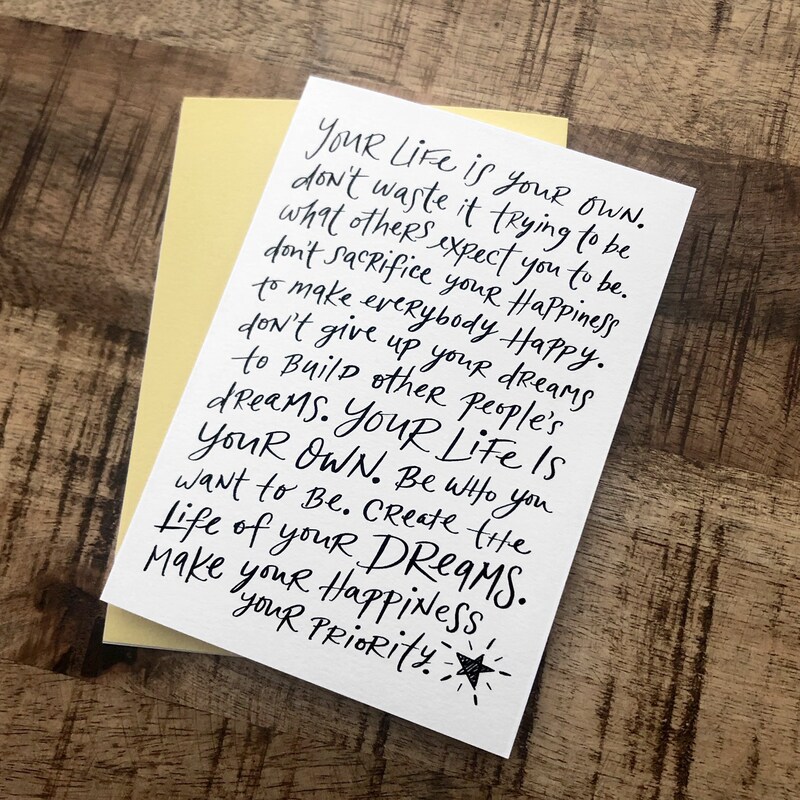 YOUR LiFe is youR OWN.
don't waste it trying to be
what others expect you to be.
don't sacrifice your Happiness
to make everybody Happy.
don't give up your dreams
to BUILD other people's
dreams. YOUR LiFe Is
YOUR OWN. Be WHo you
want to Be. Create tHe
Life of your DREAMS.
Make your HAPPiNess
your PRiORity.